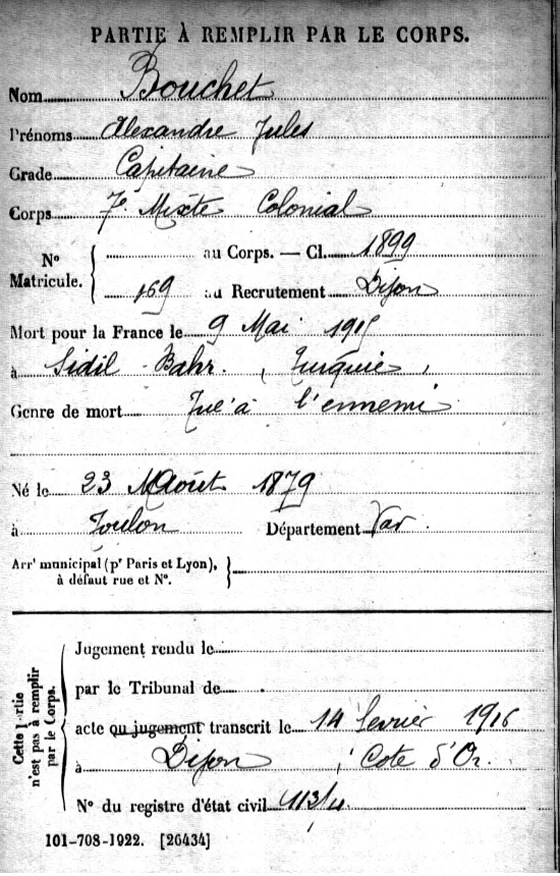 PARTIE À REMPLIR PAR LE CORPS.
Nom Bouchet
Prénoms Alexandre Jules
Grade Capitaine
Corps 7e Mixte Colonial
N° Matricule. { au Corps. — Cl. 1899
169 au Recrutement Dijon
Mort pour la France le 9 Mai 1915
à Sidil-Bahr. (Turquie)
Genre de mort Tué à l'ennemi
Né le 23 Août 1879
à Toulon Département Var.
Arrt municipal (pr Paris et Lyon), }
à défaut rue et N°.
Cette partie n'est pas à remplir par le Corps.
Jugement rendu le
par le Tribunal de
acte ou jugement transcrit le 14 février 1916
à Dijon, Cote d'Or.
N° du registre d'état civil 113/4.
101-708-1922. [26434]